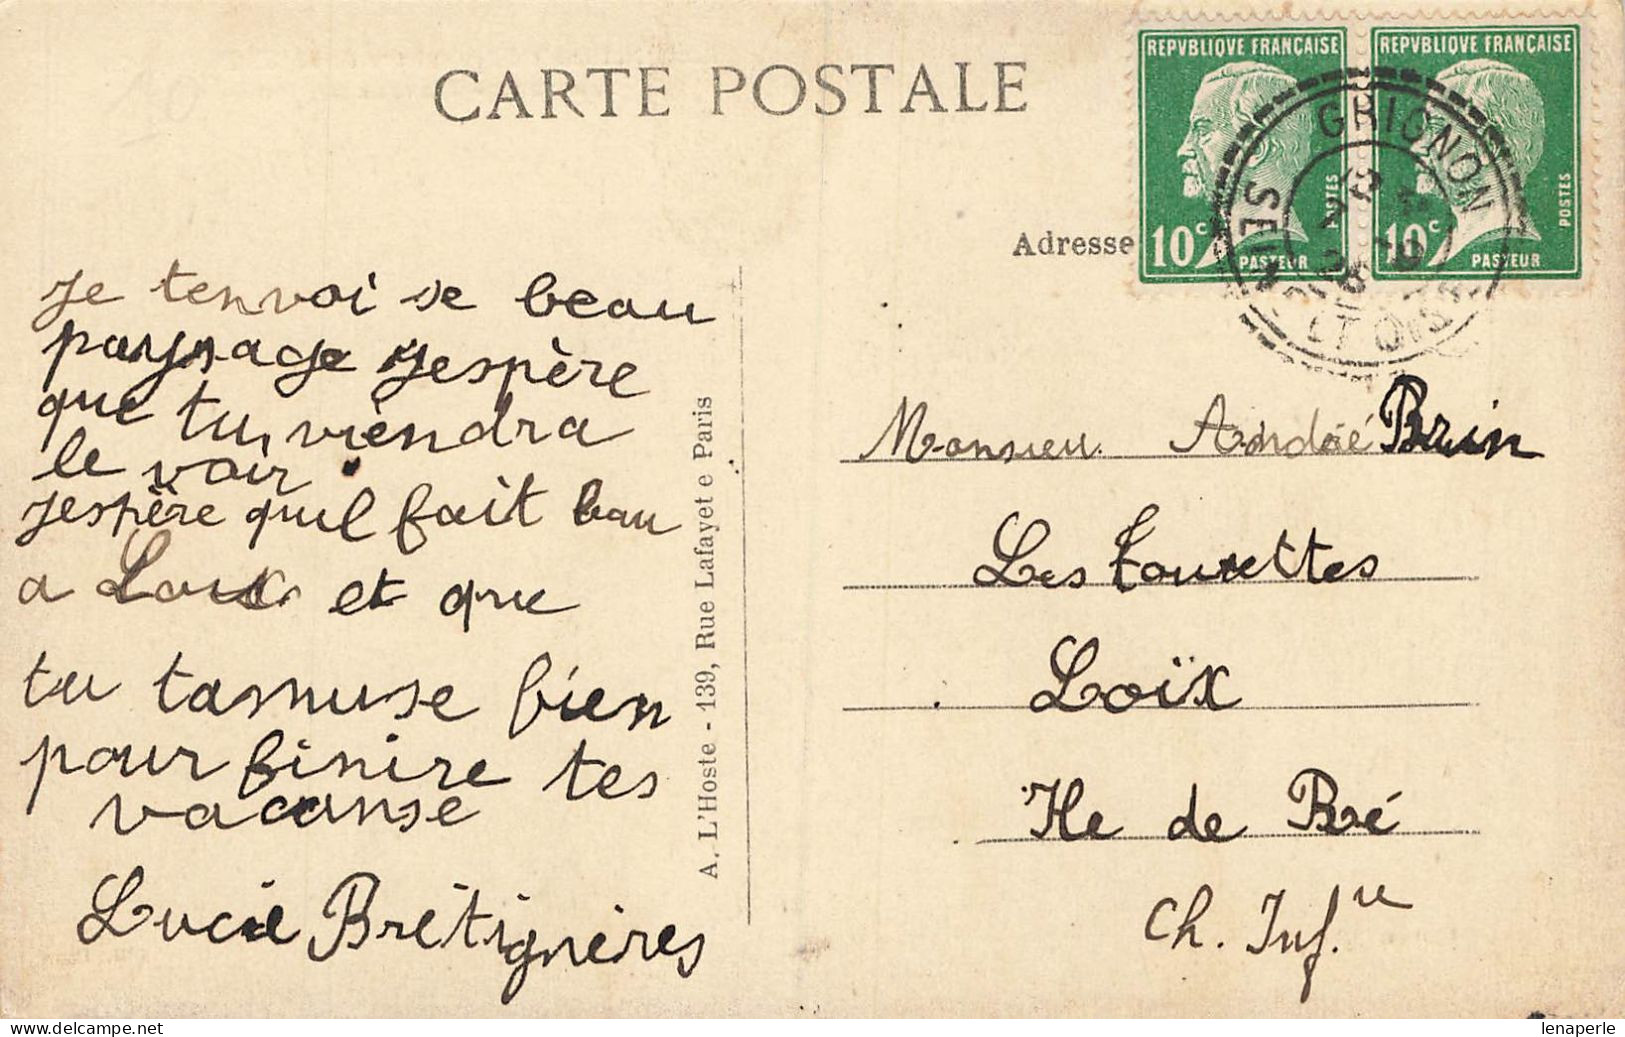 CARTE POSTALE
REPVBLIQVE FRANÇAISE
REPVBLIQVE FRANÇAISE
POSTES
POSTES
10c
PASTEUR
10c
PASTEUR
GRIGNON
SEINE ET OISE
Adresse
je tenvoi se beau
paysage jespère
que tu viendra
le voir
jespère quil fait bau
a Loix et que
tu tamuse bien
pour finire tes
vacanse
Lucie Brétignères
A. L'Hoste - 139, Rue Lafayet e Paris
Monsieu André Brin
Les Tourettes
Loïx
Ile de Ré
Ch. Infre
lenaperle